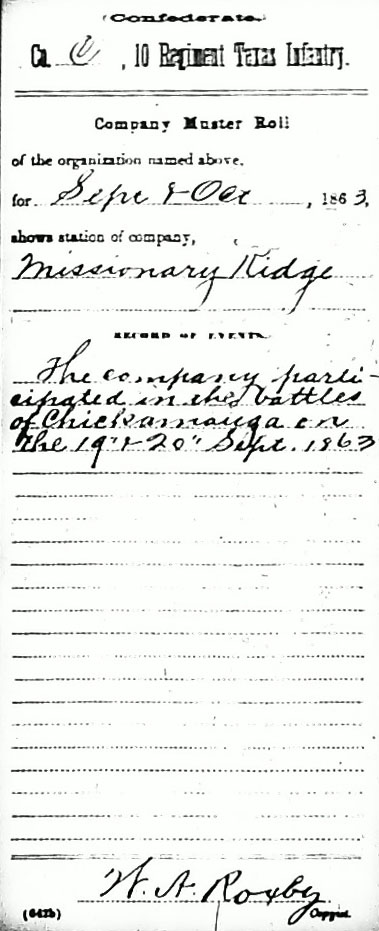 (Confederate.)
Co. C, 10 Regiment Texas Infantry.
Company Muster Roll
of the organization named above,
for Sept & Oct, 1863,
shows station of company,
Missionary Ridge
RECORD OF EVENTS.
The company parti-
cipated in the battles
of Chickamauga on
the 19" & 20" Sept. 1863
W. A. Roxby
(642b) Copyist.